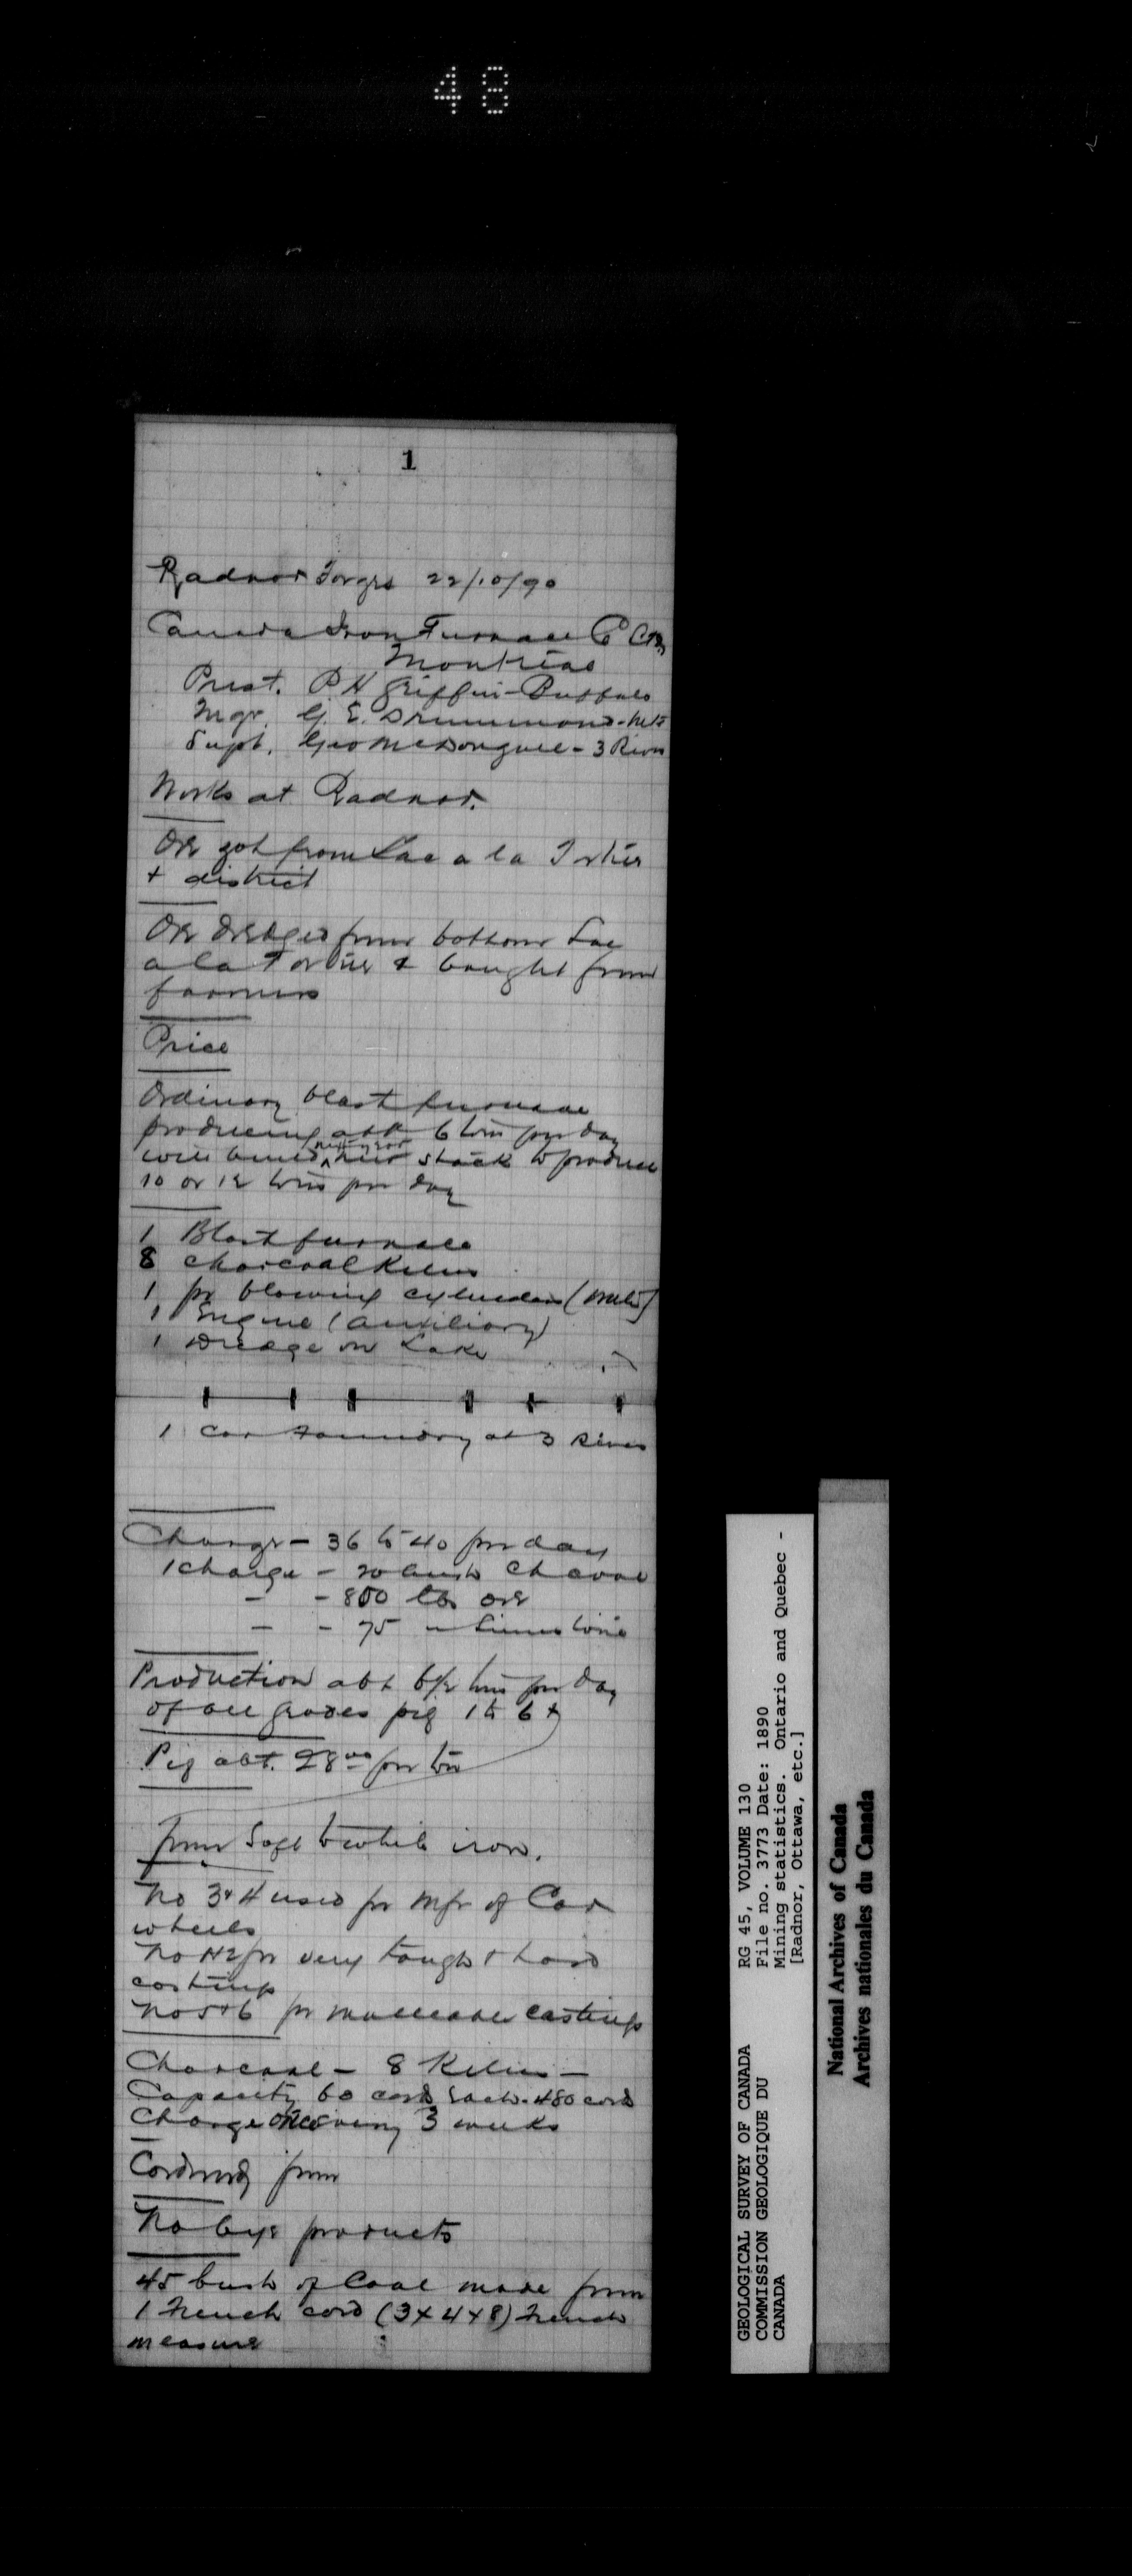 48
1
Radnor Forges 22/10/90
Canada Iron Furnace Co
Montreal
Prest. P H Griffin - Buffalo
Mgr. G. E. Drummond - Mtl
Supt. Geo McDougall - 3 Rivers
Works at Radnor.
Ore got from Lac a la Tortue
+ district
Ore dredged from bottom Lac
a la Tortue & bought from
farmers
Price
Ordinary blast furnace
producing abt 6 tons per day
will build next year new stack to produce
10 or 12 tons per day
1 Blast furnace
8 charcoal Kilns
1 pr blowing cylinders
1 Engine (auxiliary)
1 Dredge on Lake
1 Car Foundry at 3 Rivers
Charge - 36 to 40 per day
1 charge - 20 bush Charcoal
- - 800 lbs ore
- - 75 " Limestone
Production abt 6½ tons per day
of all grades pig 1 to 6
Pig abt. 28.00 per ton
from Soft to white iron.
No 3 & 4 used for mfr of Car
wheels
No 1 & 2 for very tough & hard
castings
No 5 & 6 for malleable castings
Charcoal - 8 Kilns -
Capacity 60 cords each. 480 cords
Charge once every 3 weeks
Cordwood from
No bye products
45 bush of Coal made from
1 French cord (3 x 4 x 8) French
measure
GEOLOGICAL SURVEY OF CANADA
COMMISSION GEOLOGIQUE DU
CANADA
RG 45, VOLUME 130
File no. 3773 Date: 1890
Mining statistics. Ontario and Quebec -
[Radnor, Ottawa, etc.]
National Archives of Canada
Archives nationales du Canada